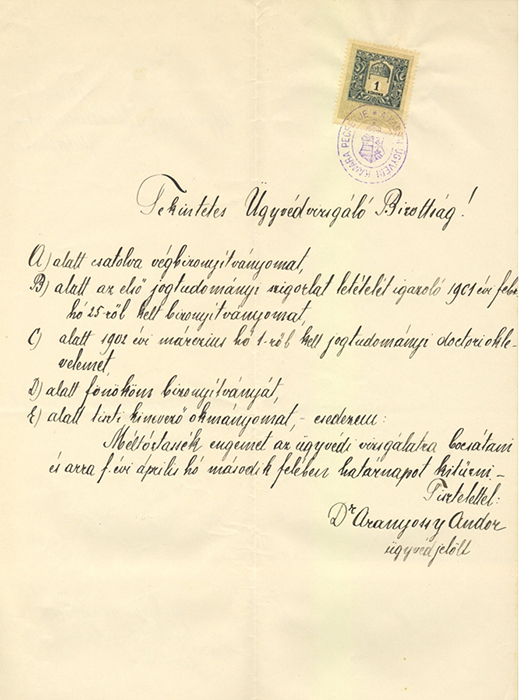 1
ÜGYVÉDI KAMARA PECSÉTJE
Tekintetes Ügyvédvizsgáló Bizottság!
A) alatt csatolva végbizonyitványomat,
B) alatt az első jogtudományi szigorlat letételét igazoló 1901 évi febr.
hó 25-ről kelt bizonyitványomat,
C) alatt 1902 évi márczius hó 1-ről kelt jogtudományi doctori okle-
velemet,
D) alatt főnököm bizonyitványát,
E) alatt tiszti kinevező okmányomat, – esedezem:
Méltóztassék engemet az ügyvédi vizsgálatra bocsátani
és arra f. évi április hó második felében határnapot kitűzni –
Tisztelettel:
Dr Aranyossy Andor
ügyvédjelölt